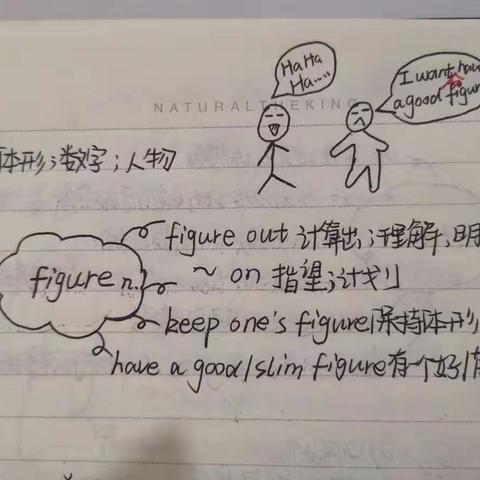 HaHa
Ha....
I want
to
a good figure
NATURALTHEKING
体形;数字;人物
figure out 计算出;理解,明
figure n.
~ on 指望;计划
keep one's figure 保持体形
have a good/slim figure 有一个好/